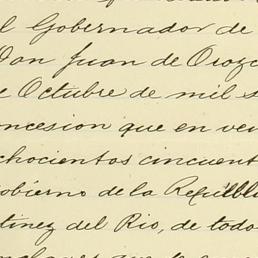 l Gobernador de
Don Juan de Orozc
e Octubre de mil s
oncesion que en ven
chocientos cincuent
obierno de la República
tinez del Rio, de todo